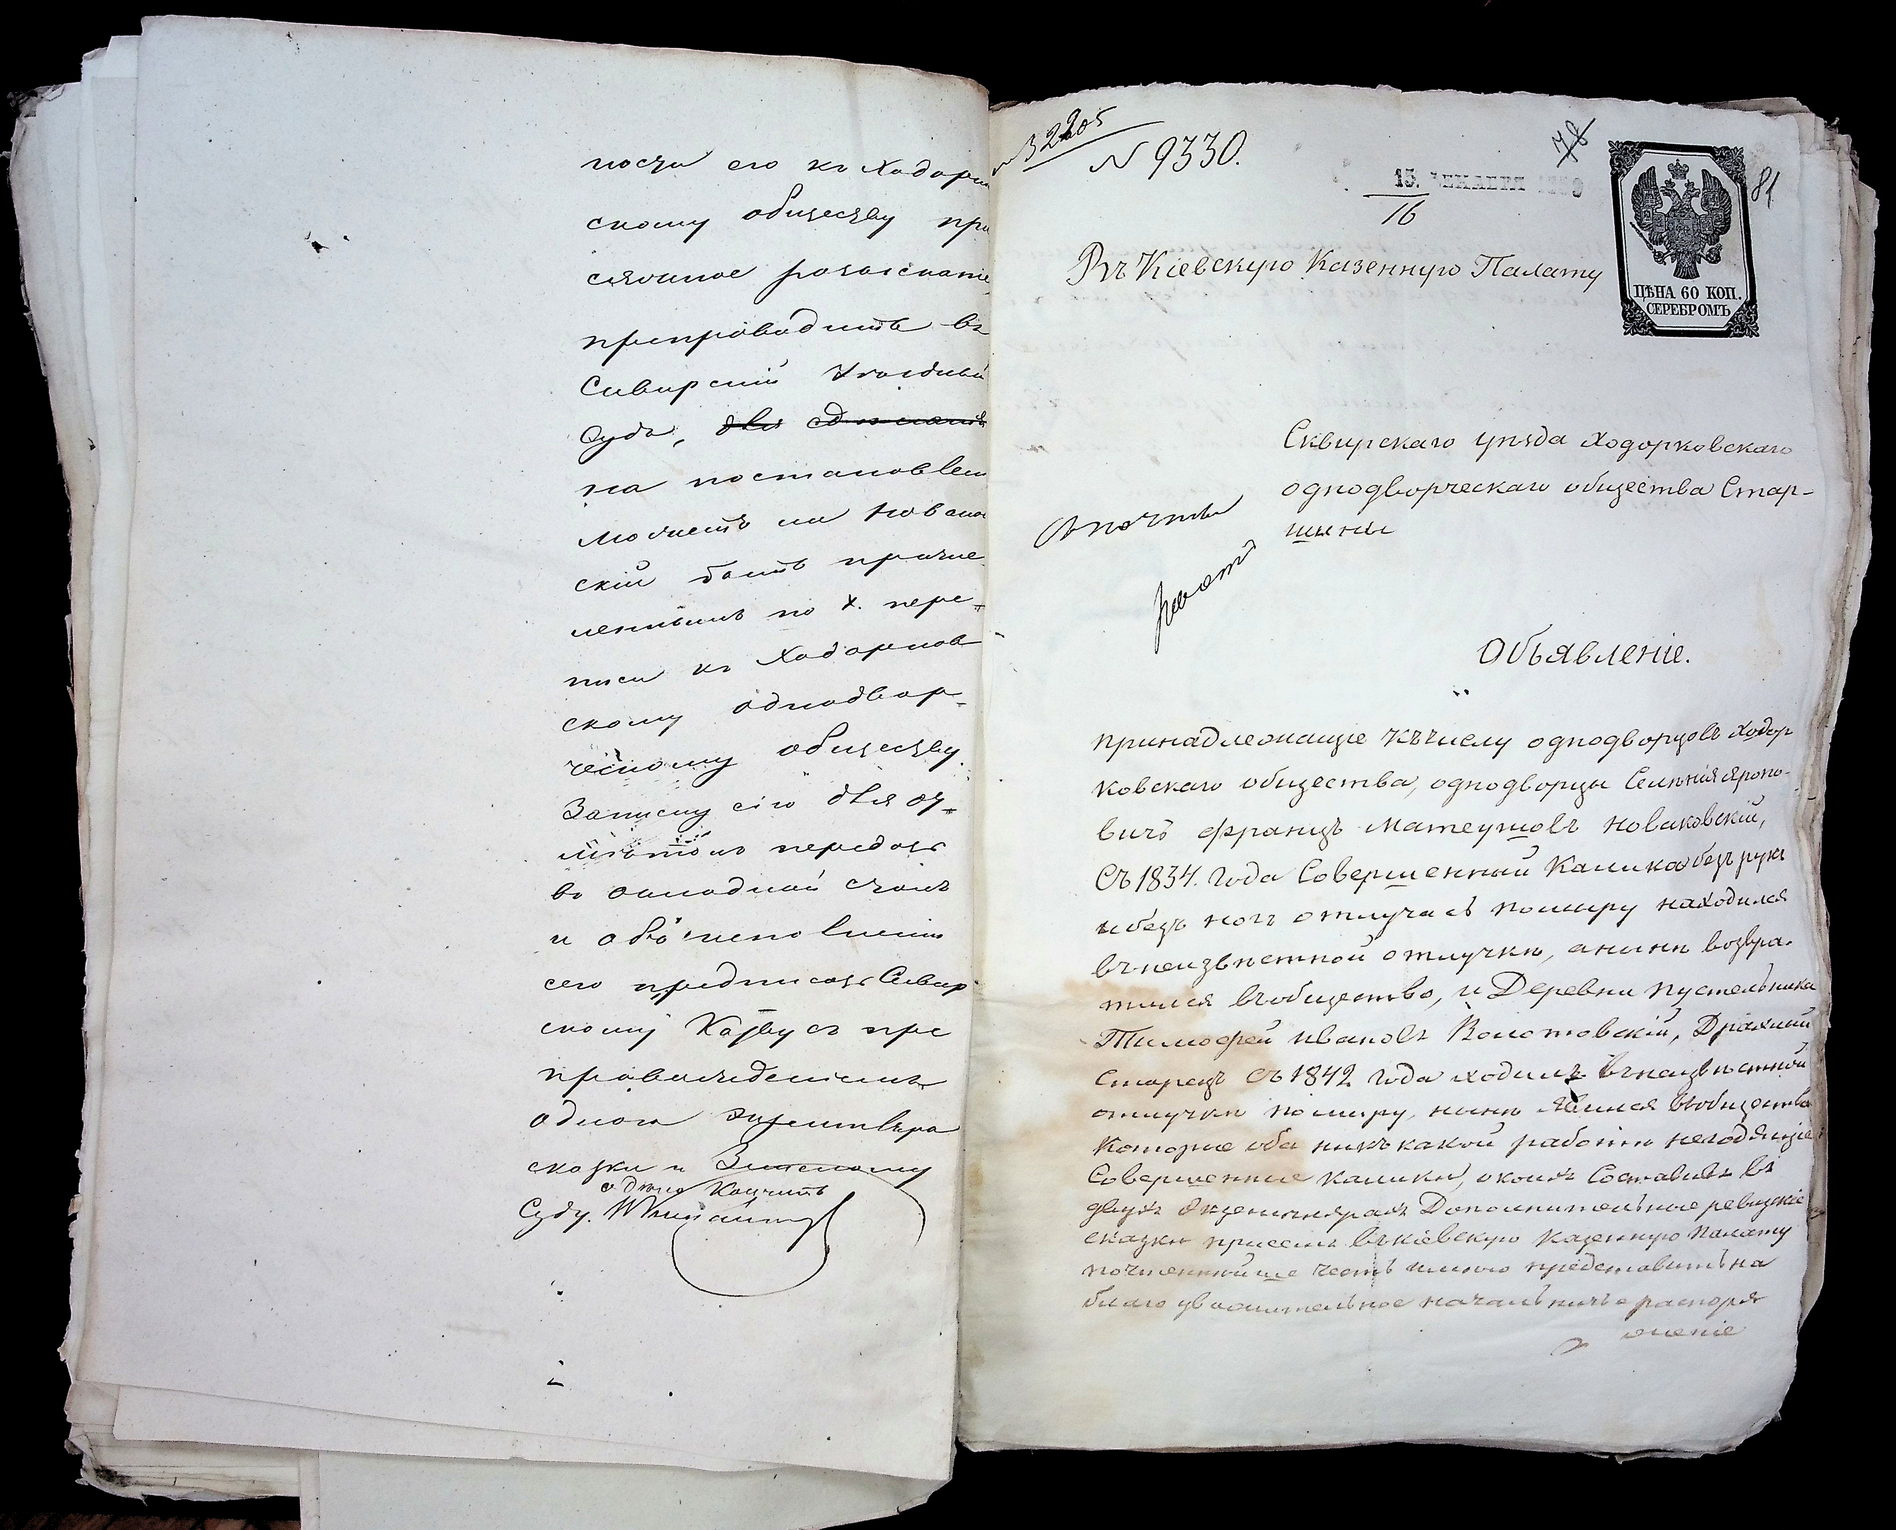 его къ Ходорков
скому обществу при
сяжное розысканіе,
препроводить въ
Сквирскій Уѣздный
Судъ,
на постановлен
можетъ ли Новаков
скій быть причи
сленнымъ по X. пере-
писи къ Ходорков
скому однодвор-
ческому обществу.
Записку сію для от-
передать
въ окладной столъ
и объ исполненіи
сего предписать Сквир
скому Казнач съ пре
провожденіемъ
одного экземпляра
сказки и Земскому
одною Кончить
Суду.
3220
N 9330.
78
81
15. ДЕКАБРЯ
16
ЦѢНА 60 КОП.
СЕРЕБРОМЪ
Въ Кіевскую Казенную Палату
Сквирскаго уѣзда Ходорковскаго
однодворческаго общества Стар-
шины
Объявленіе.
принадлежащіе къ числу однодворцовъ Ходор
ковскаго общества, однодворцы Селенія Яропо-
вичъ Францъ Матеушовъ Новаковскій,
Съ 1834. года Совершенный Калика безъ рукъ
и безъ ногъ отлучась помиру находился
въ неизвѣстной отлучки, а нинѣ возвра-
тился въ общество, и Деревни Пустельники
Тимофей Ивановъ Волотовскій, Дряхлый
Старецъ съ 1842 года ходилъ въ неизвѣстной
отлучки помиру, нынѣ явился въ общество
Которые оба никъ какой работы негодящіе
Совершенние калики, о коихъ Составивъ въ
двухъ Экземплярахъ Дополнительные ревизкіе
сказки присемъ въ Кіевскую Казенную Палату
почтеннѣйше честь имѣю представить на
благоуважительное начальничье распоря
женіе